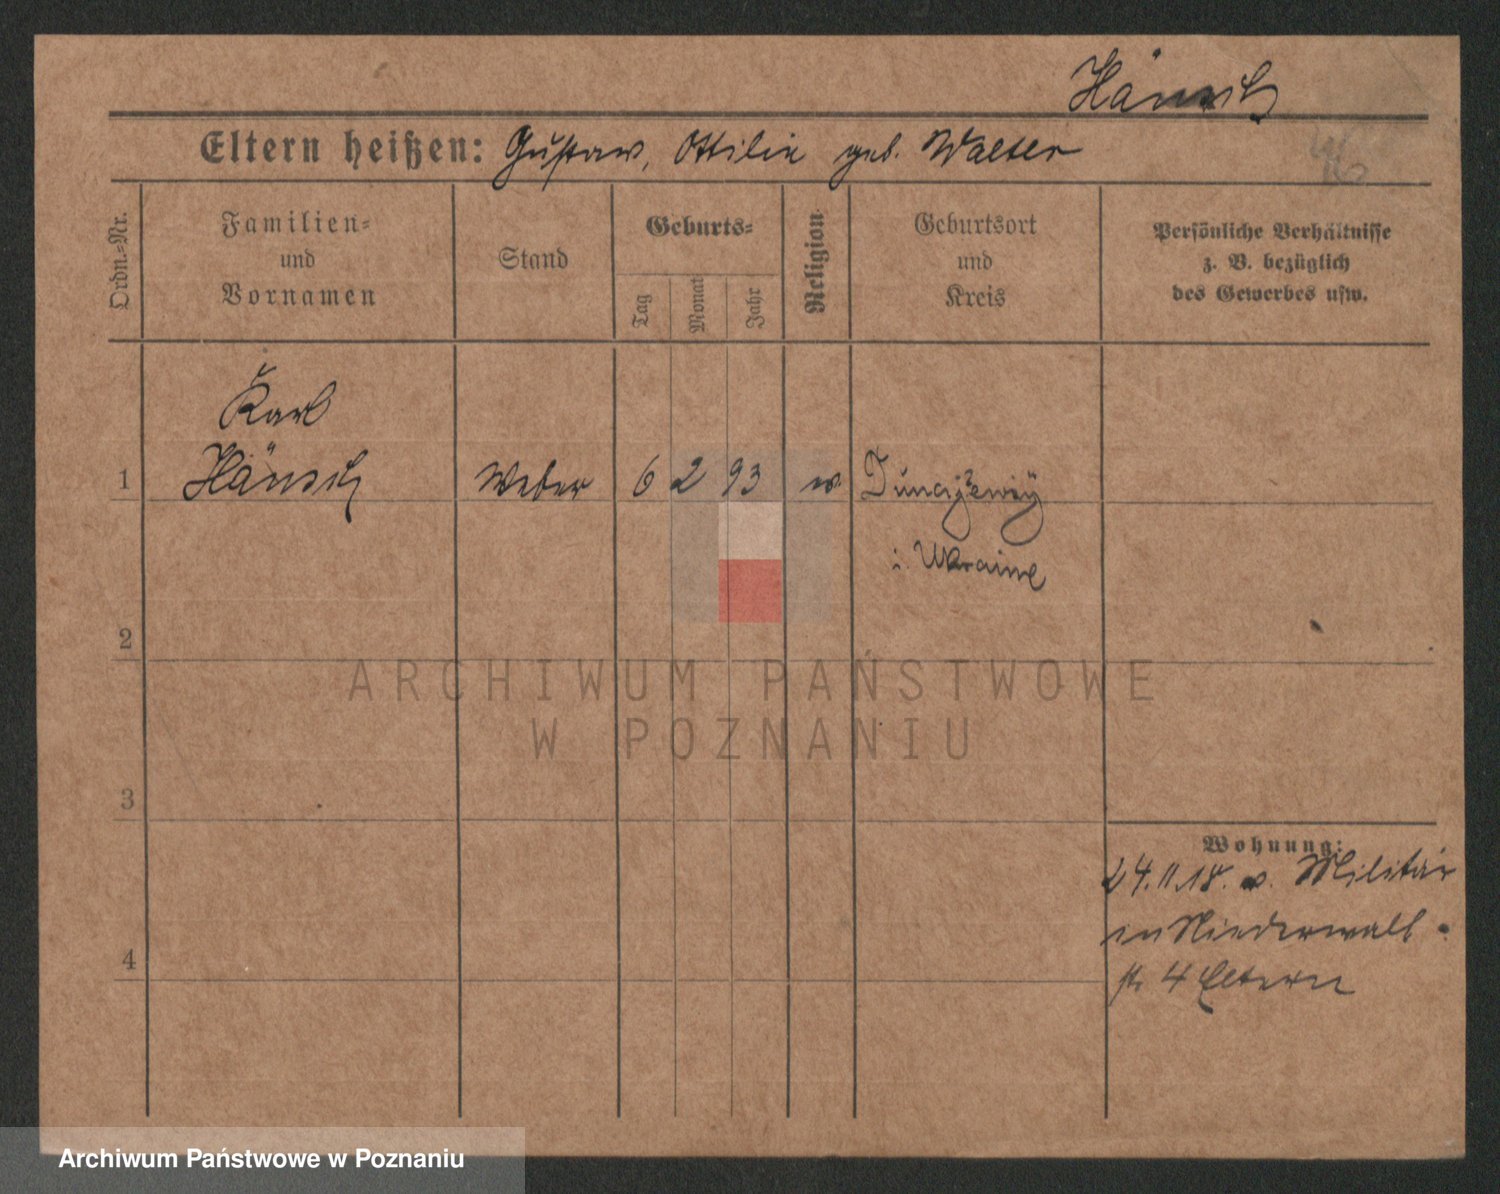 Hänsch
Eltern heißen: Gustaw, Ottilie geb. Walter
Ordn.-Nr.
Familien-
und
Vornamen
Stand
Geburts-
Tag
Monat
Jahr
Religion
Geburtsort
und
Kreis
Persönliche Verhältnisse
z. B. bezüglich
des Gewerbes usw.
Karl
1 Hänsch Weber 6 2 93
i. Ukraine
2
ARCHIWUM PAŃSTWOWE
W POZNANIU
3
Wohnung:
24.11.18. v. Militär
in Niederwall
str 4 Eltern
4
Archiwum Państwowe w Poznaniu